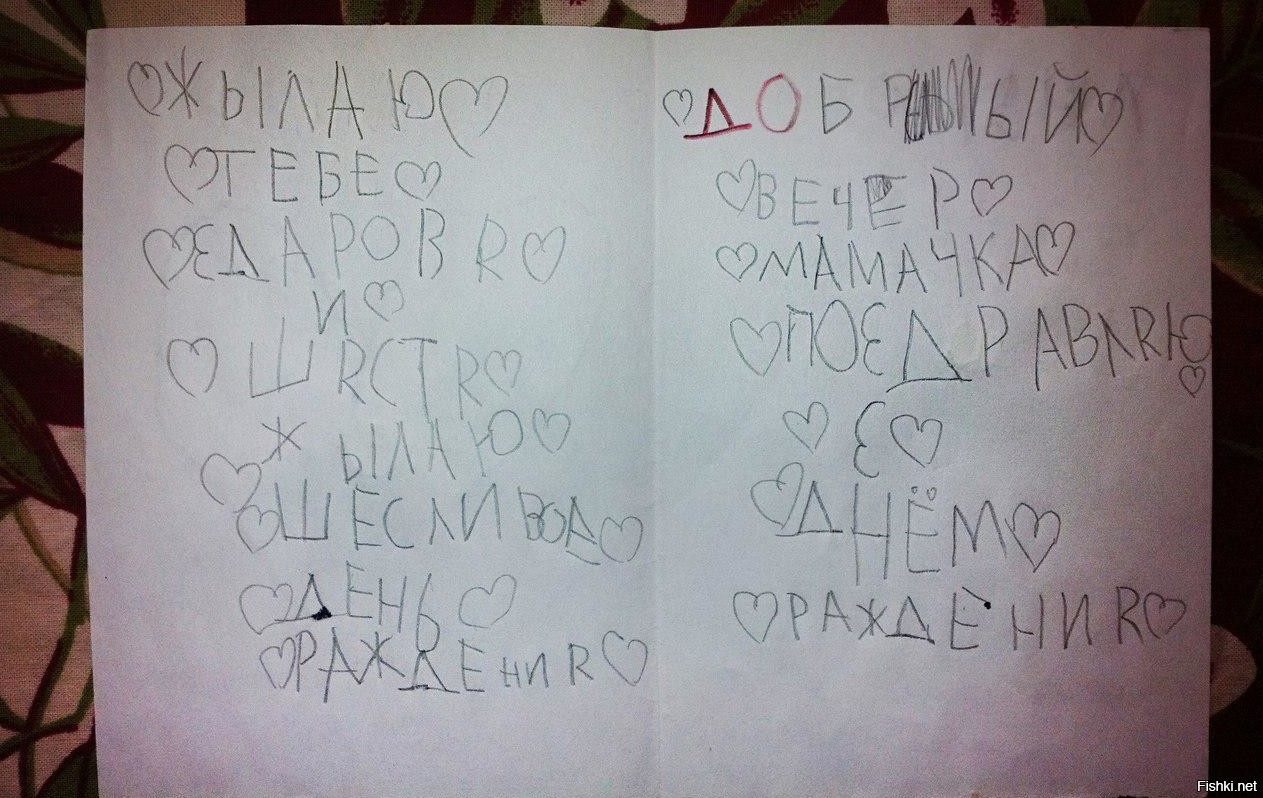 ЖЫЛАЮ
ТЕБЕ
ЗДАРОВЯ
И
ШЯСТЯ
ЖЫЛАЮ
ШЕСЛИВОА
ДЕНЬ
РАЖДЕНИЯ
ДОБРЫЙ
ВЕЧЕР
МАМАЧКА
ПОЗДРАВЛЯЮ
З
ДНЁМ
РАЖДЕНИЯ
Fishki.net